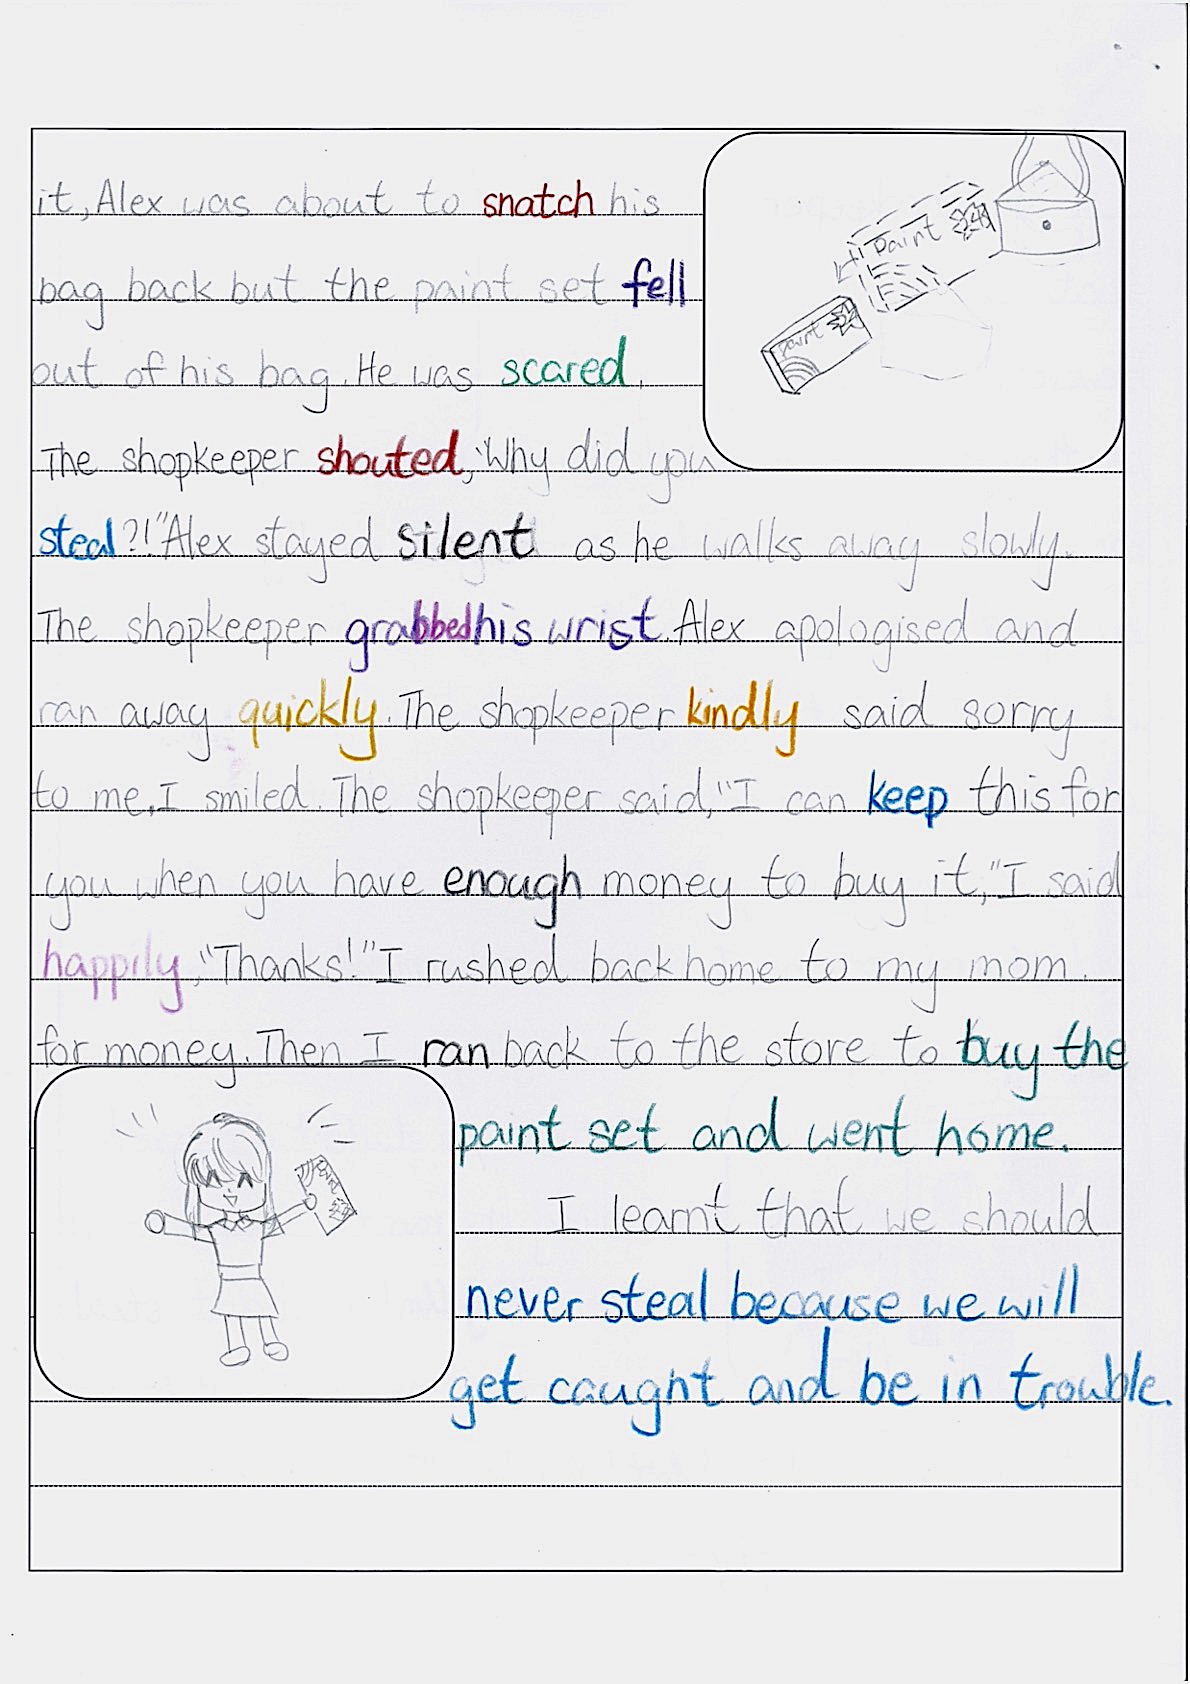 it, Alex was about to snatch his
bag back but the paint set fell
out of his bag. He was scared.
The shopkeeper shouted, "Why did you
steal?!" Alex stayed silent as he walks away slowly.
The shopkeeper grabbed his wrist. Alex apologised and
ran away quickly. The shopkeeper kindly said sorry
to me, I smiled. The shopkeeper said, "I can keep this for
you when you have enough money to buy it," I said
happily, "Thanks!" I rushed back home to my mom
for money. Then I ran back to the store to buy the
paint set and went home.
I learnt that we should
never steal because we will
get caught and be in trouble.
paint
paint